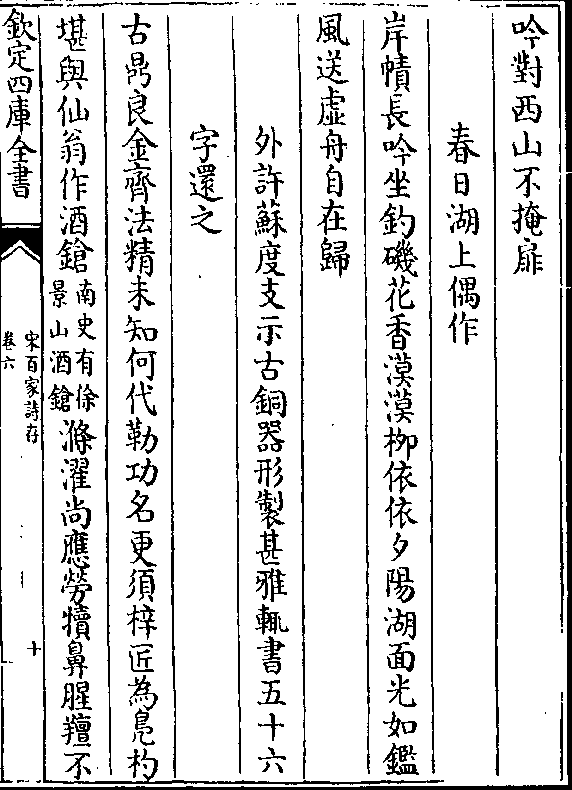 吟對西山不掩扉
春日湖上偶作
岸幘長吟坐釣磯花香漠漠柳依依夕陽湖面光如鑑
風送虛舟自在歸
外許蘇度支示古銅器形製甚雅輒書五十六
字還之
古鼎良金齊法精未知何代勒功名更須梓匠為鳧杓
堪與仙翁作酒鎗南史有徐景山酒鎗滌濯尚應勞犢鼻腥羶不
欽定四庫全書
宋百家詩存
卷六
十